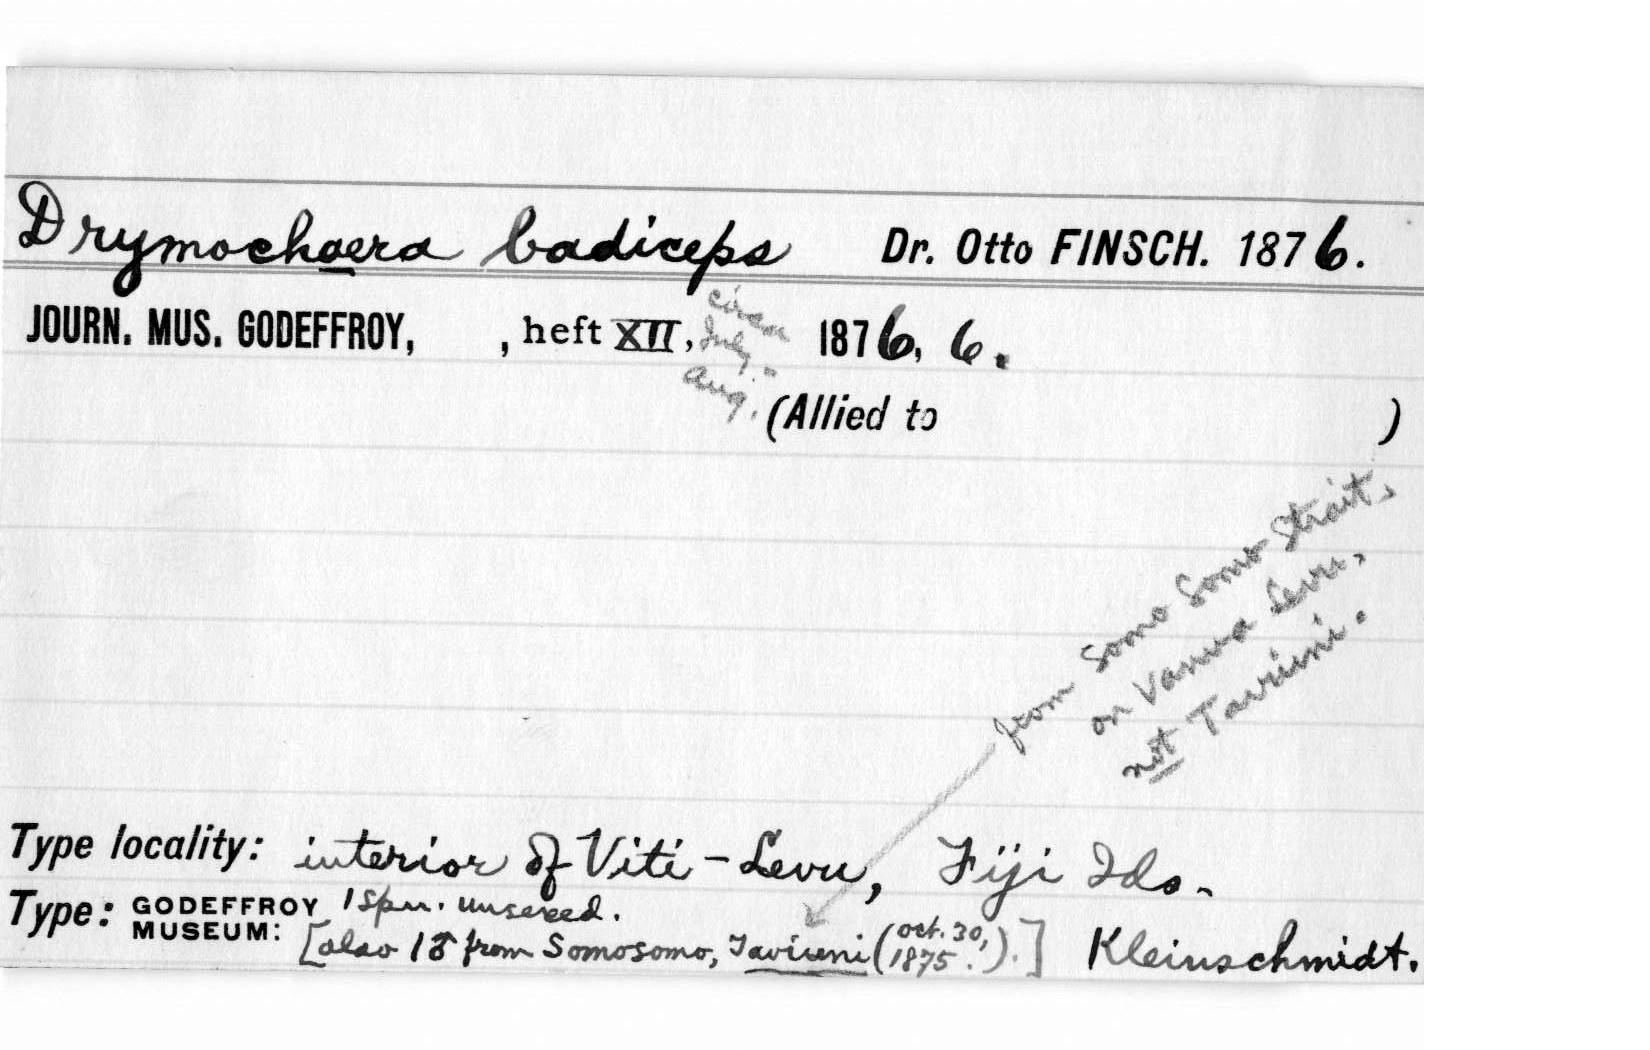 Drymochaera badiceps Dr. Otto FINSCH. 1876.
JOURN. MUS. GODEFFROY, , heft XII, circa July - Aug. 1876, 6.
(Allied to )
from Somo Somo Strait,
on Vanua Levu,
not Taviuni.
Type locality: interior of Viti-Levu, Fiji Ids.
Type: GODEFFROY MUSEUM: 1 spm. unsexed.
[also 1♂ from Somosomo, Taviuni (Oct. 30, 1875.).] Kleinschmidt.